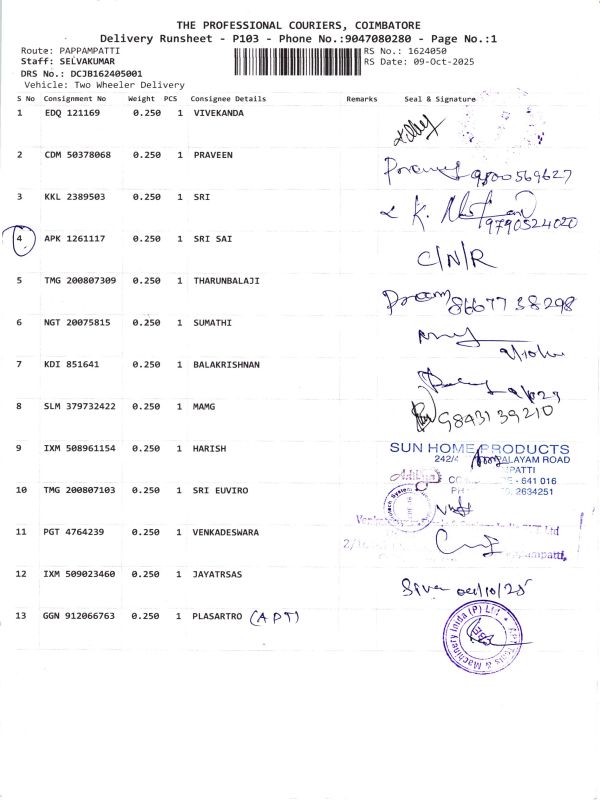 THE PROFESSIONAL COURIERS, COIMBATORE
Delivery Runsheet - P103 - Phone No.:9047080280 - Page No.:1
Route: PAPPAMPATTI
Staff: SELVAKUMAR
DRS No.: DCJB162405001
Vehicle: Two Wheeler Delivery
RS No.: 1624050
RS Date: 09-Oct-2025
S No Consignment No Weight PCS Consignee Details Remarks Seal & Signature
1 EDQ 121169 0.250 1 VIVEKANDA
2 CDM 50378068 0.250 1 PRAVEEN
9500569627
3 KKL 2389503 0.250 1 SRI
K.
9790524020
4 APK 1261117 0.250 1 SRI SAI C/N/R
5 TMG 200807309 0.250 1 THARUNBALAJI
8667738298
6 NGT 20075815 0.250 1 SUMATHI
7 KDI 851641 0.250 1 BALAKRISHNAN
8 SLM 379732422 0.250 1 MAMG 9843139210
9 IXM 508961154 0.250 1 HARISH
SUN HOME PRODUCTS
242/4 ALAYAM ROAD
PATTI
641 016
2634251
10 TMG 200807103 0.250 1 SRI EUVIRO
11 PGT 4764239 0.250 1 VENKADESWARA
12 IXM 509023460 0.250 1 JAYATRSAS
13 GGN 912066763 0.250 1 PLASARTRO (APT)
APT Tools & Machinery India (P) Ltd